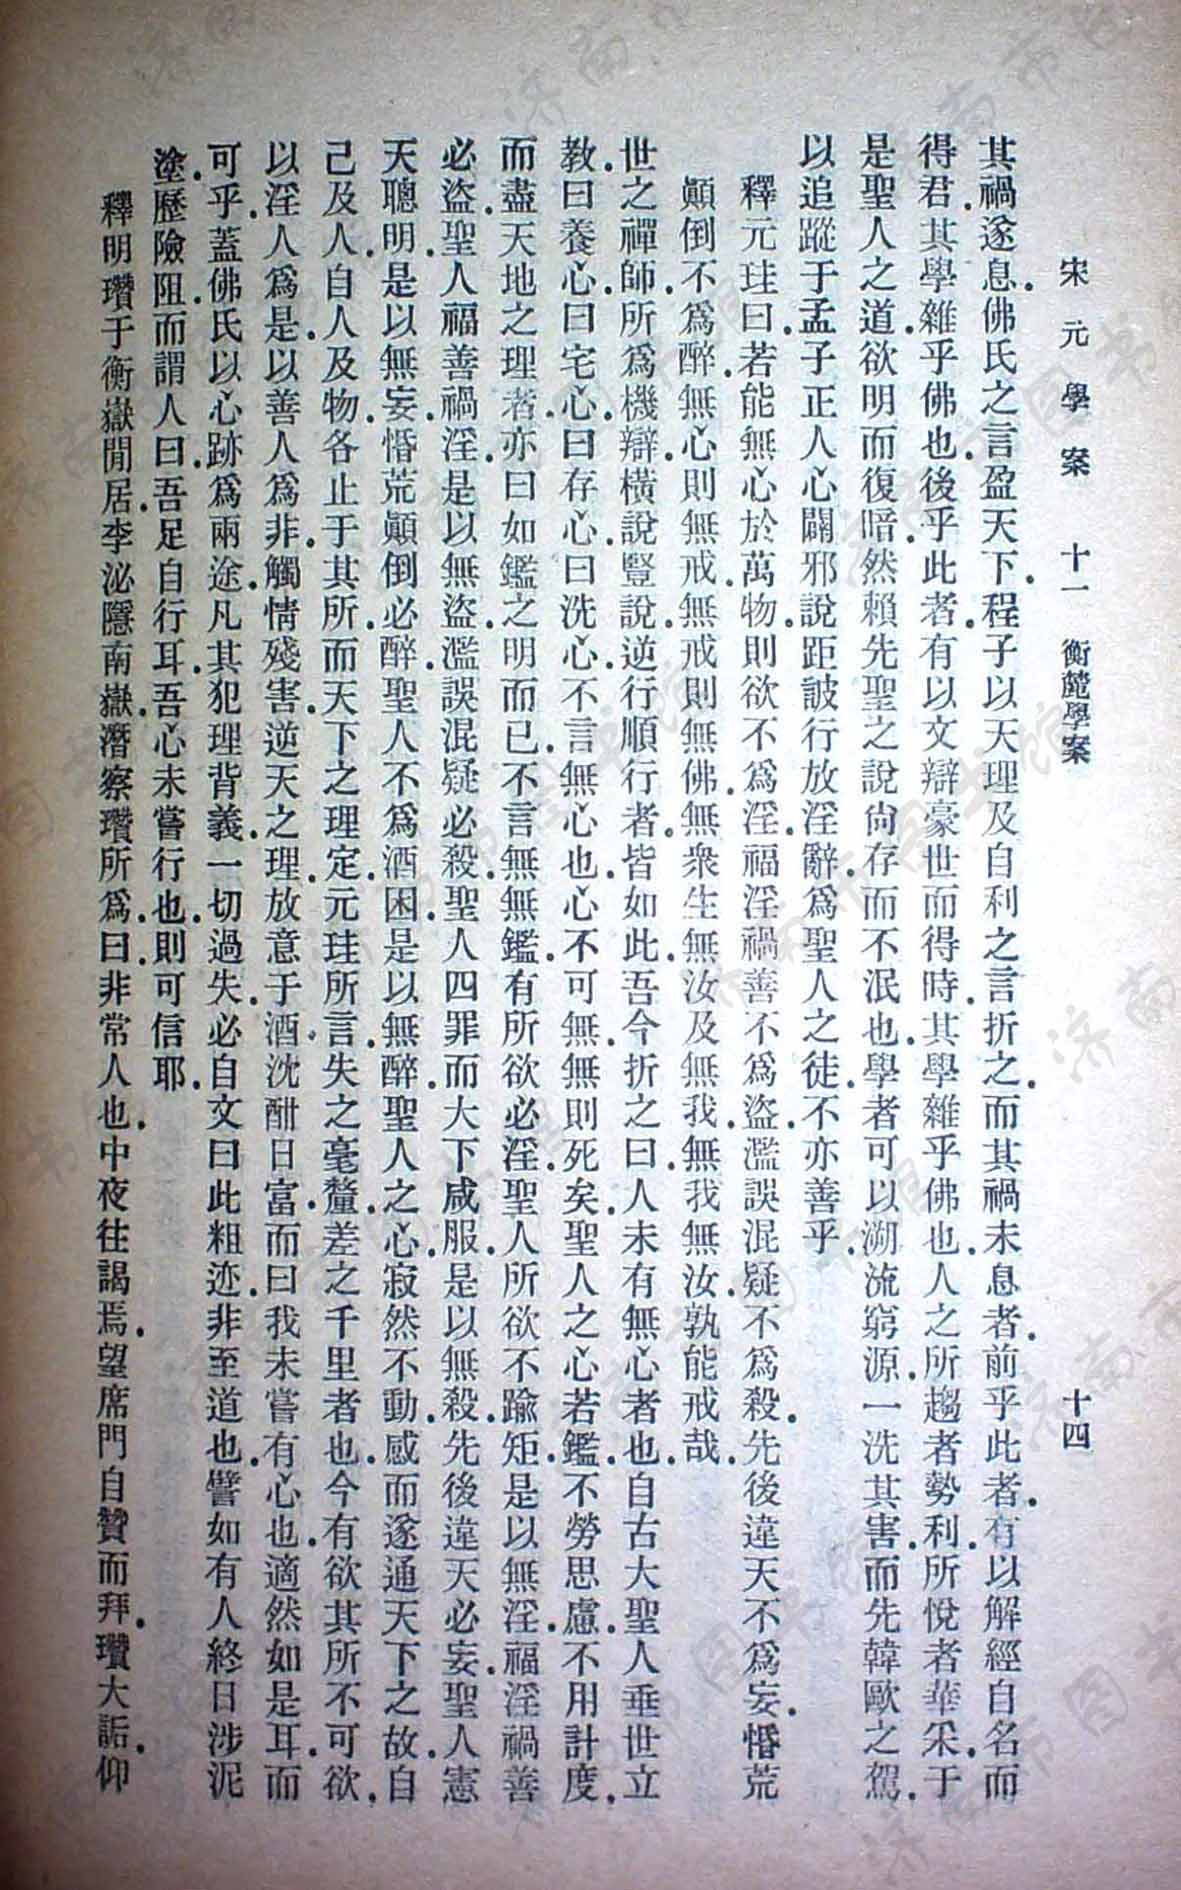 宋元學案 十一 衡麓學案 十四
其禍遂息.佛氏之言盈天下.程子以天理及自利之言折之.而其禍未息者.前乎此者.有以解經自名而
得君.其學雜乎佛也.後乎此者.有以文辯豪世而得時.其學雜乎佛也.人之所趨者勢利.所悅者華采.于
是聖人之道.欲明而復暗.然賴先聖之說尙存而不泯也.學者可以溯流窮源.一洗其害.而先韓歐之駕.
以追蹤于孟子.正人心.闢邪說.距詖行.放淫辭.爲聖人之徒.不亦善乎.
釋元珪曰.若能無心於萬物.則欲不爲淫.福淫禍善不爲盜.濫誤混疑不爲殺.先後違天不爲妄.惛荒
顚倒不爲醉.無心則無戒.無戒則無佛.無衆生.無汝及無我.無我無汝.孰能戒哉.
世之禪師.所爲機辯.橫說豎說.逆行順行者.皆如此.吾今折之曰.人未有無心者也.自古大聖人垂世立
教.曰養心.曰宅心.曰存心.曰洗心.不言無心也.心不可無.無則死矣.聖人之心若鑑.不勞思慮.不用計度.
而盡天地之理者.亦曰如鑑之明而已.不言無無鑑.有所欲必淫.聖人所欲不踰矩.是以無淫.福淫禍善
必盜.聖人福善禍淫.是以無盜.濫誤混疑必殺.聖人四罪而大下咸服.是以無殺.先後違天必妄.聖人憲
天聰明.是以無妄.惛荒顚倒必醉.聖人不爲酒困.是以無醉.聖人之心.寂然不動.感而遂通天下之故.自
己及人.自人及物.各止于其所.而天下之理定.元珪所言.失之毫釐.差之千里者也.今有欲其所不可欲.
以淫人爲是.以善人爲非.觸情殘害.逆天之理.放意于酒.沈酣日富.而曰我未嘗有心也.適然如是耳.而
可乎.蓋佛氏以心跡爲兩途.凡其犯理背義.一切過失.必自文曰.此粗迹.非至道也.譬如有人終日涉泥
塗.歷險阻.而謂人曰.吾足自行耳.吾心未嘗行也.則可信耶.
釋明瓚于衡嶽閒居.李泌隱南嶽.潛察瓚所爲.曰.非常人也.中夜往謁焉.望席門自贊而拜.瓚大詬.仰